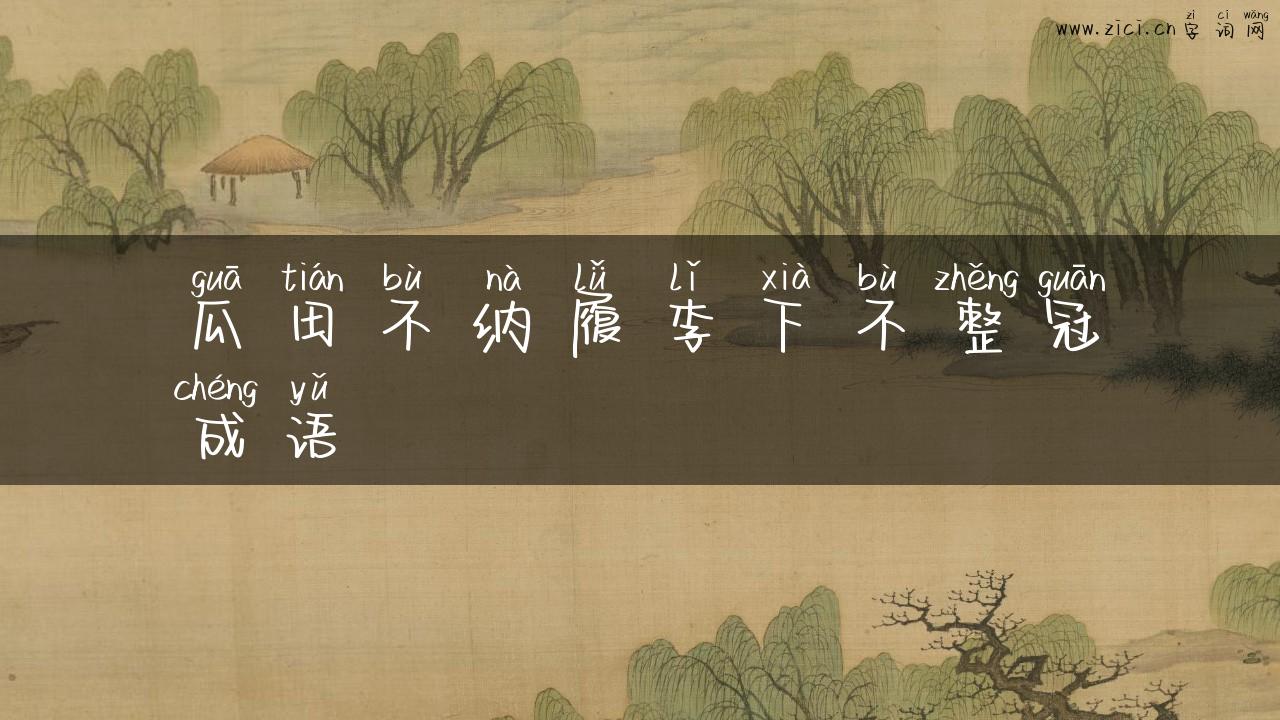 zì cí wǎng
www.zīcī.cn 字 词 网
guā tián bù nà lǚ lǐ xià bù zhěng guān
瓜 田 不 纳 履 李 下 不 整 冠
chéng yǔ
成 语